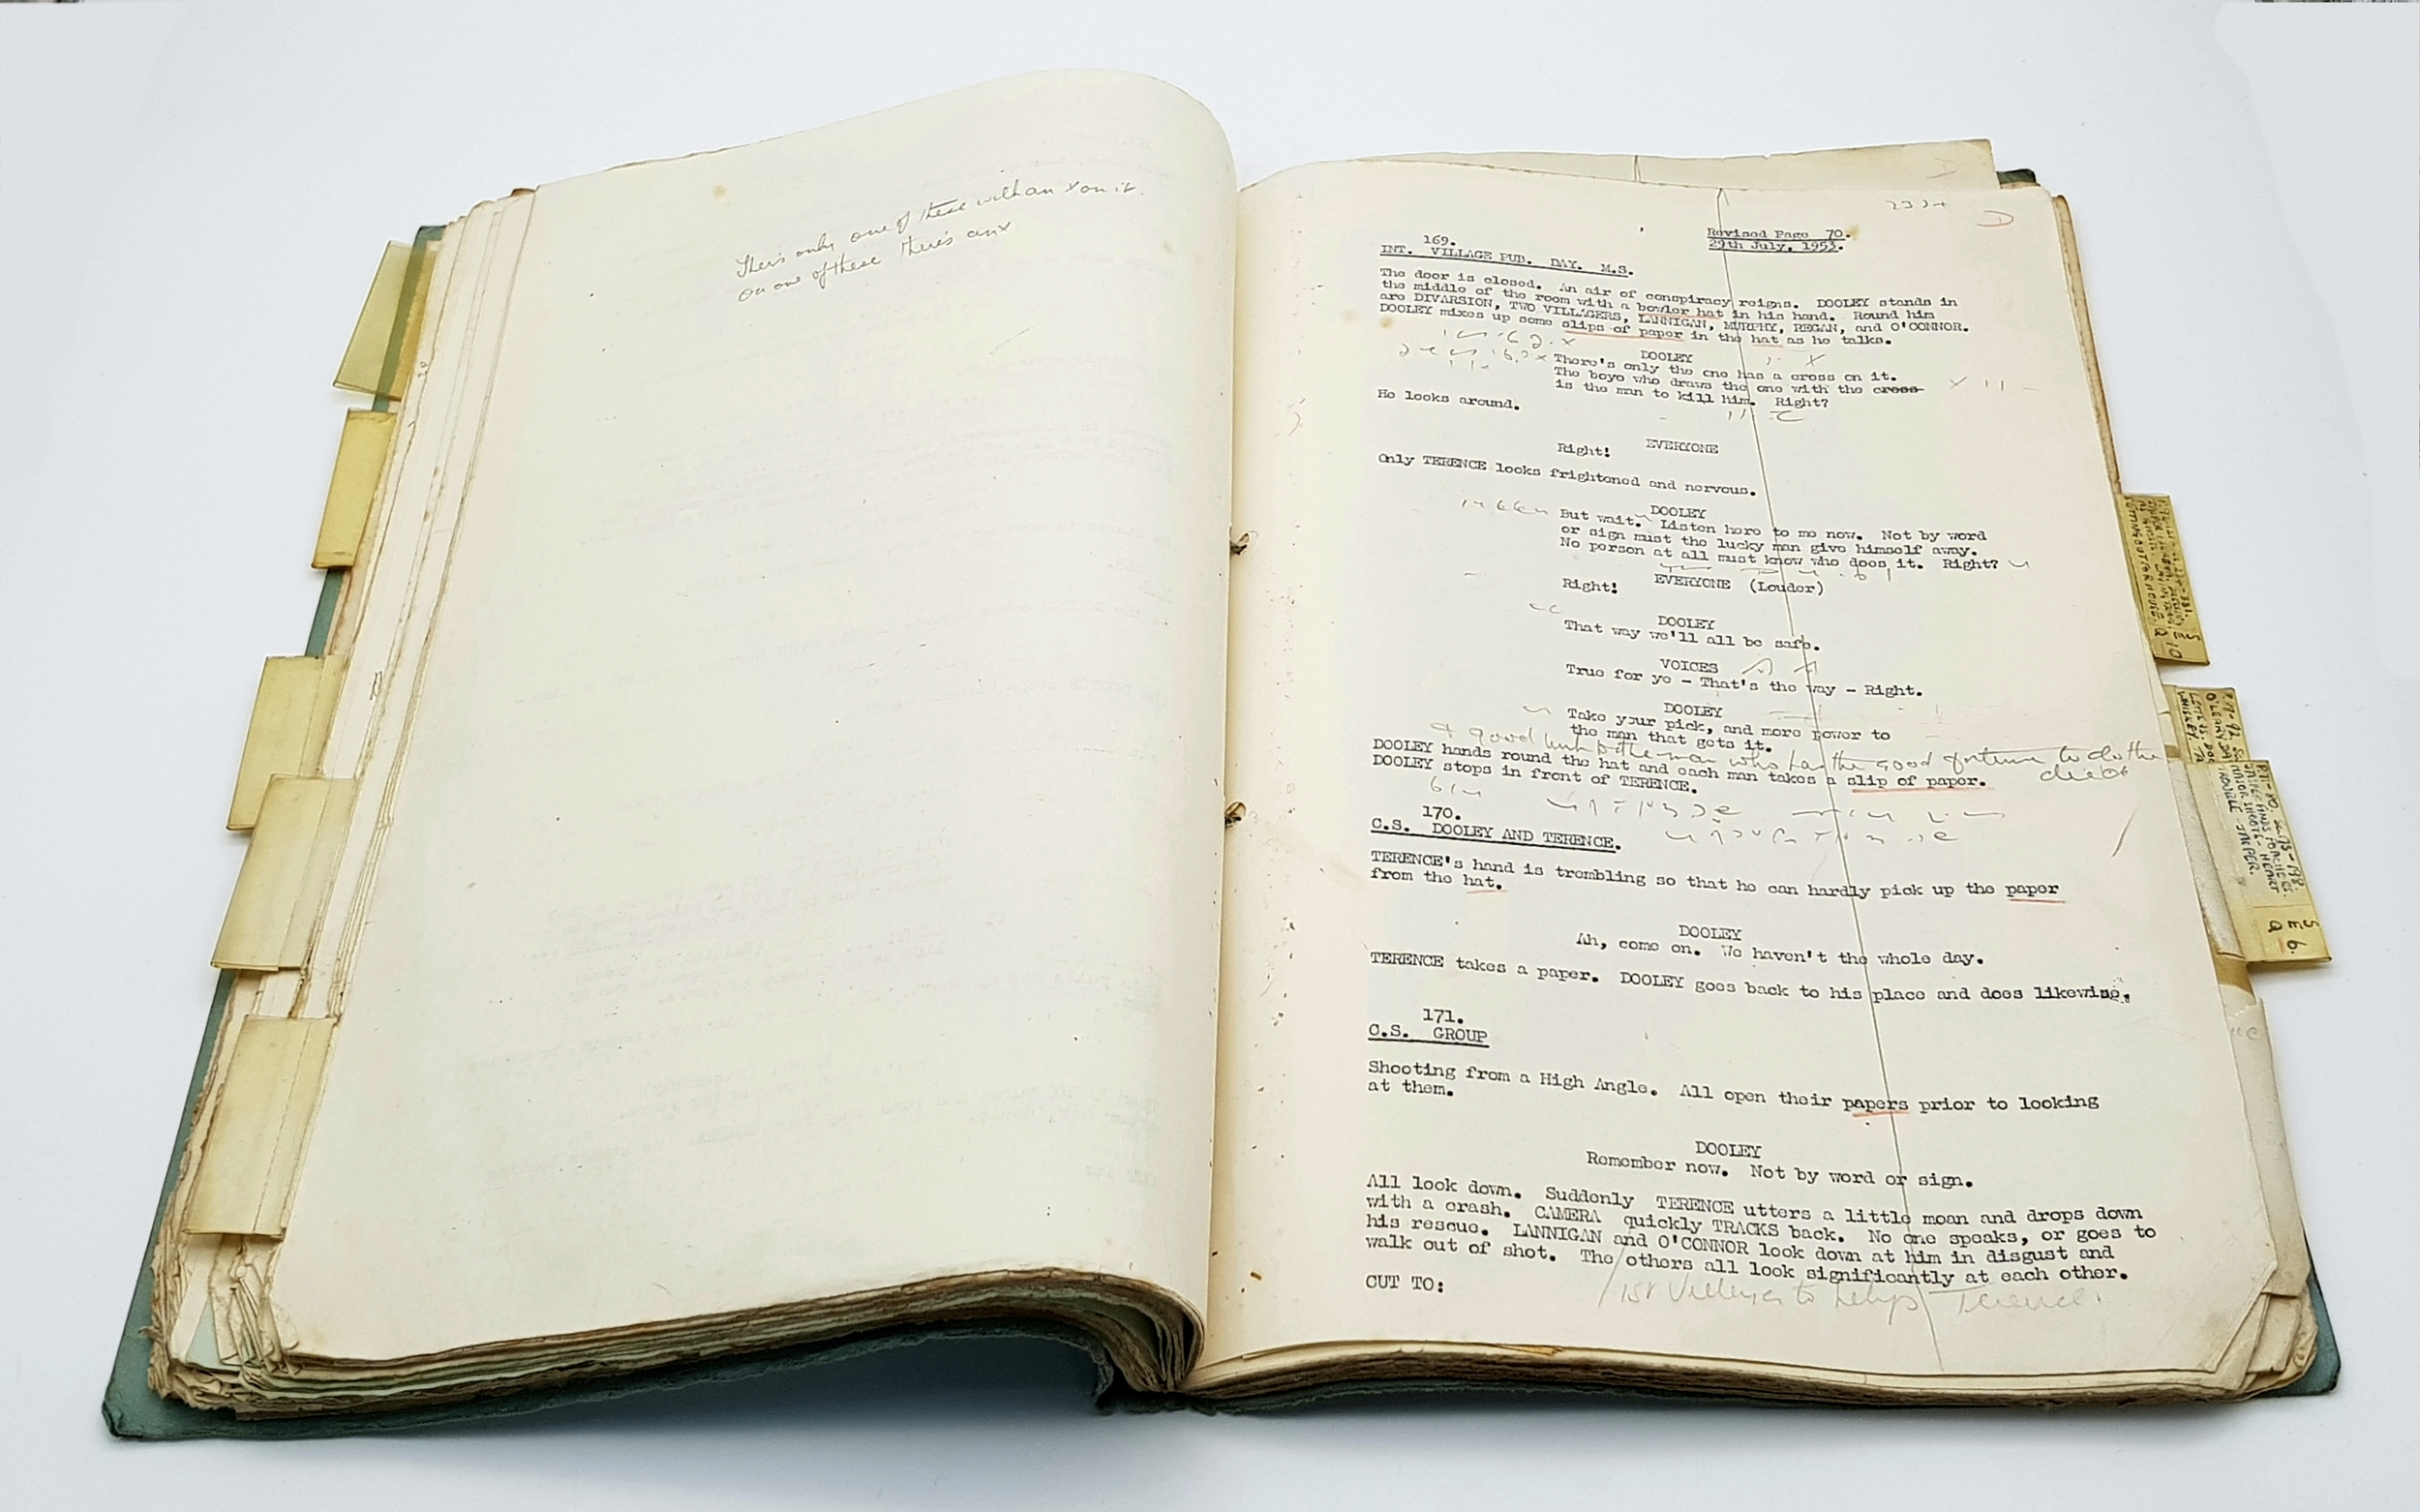 There's only one of these with an x on it.
on one of these there's an x
Revised Page 70.
29th July, 1953.
169.
INT. VILLAGE PUB. DAY. M.S.
The door is closed. An air of conspiracy reigns. DOOLEY stands in
the middle of the room with a bowler hat in his hand. Round him
are DIVARSION, TWO VILLAGERS, LANNIGAN, MURPHY, REGAN, and O'CONNOR.
DOOLEY mixes up some slips of paper in the hat as he talks.
DOOLEY
There's only the one has a cross on it.
The boyo who draws the one with the cross
is the man to kill him. Right?
He looks around.
EVERYONE
Right!
Only TERENCE looks frightened and nervous.
DOOLEY
But wait. Listen here to me now. Not by word
or sign must the lucky man give himself away.
No person at all must know who does it. Right?
EVERYONE (Louder)
Right!
DOOLEY
That way we'll all be safe.
VOICES
True for ye - That's the way - Right.
DOOLEY
Take your pick, and more power to
the man that gets it.
& good luck to the man who has the good fortune to do the
DOOLEY hands round the hat and each man takes a slip of paper.
DOOLEY stops in front of TERENCE.
170.
C.S. DOOLEY AND TERENCE.
TERENCE's hand is trembling so that he can hardly pick up the paper
from the hat.
DOOLEY
Ah, come on. We haven't the whole day.
TERENCE takes a paper. DOOLEY goes back to his place and does likewise.
171.
C.S. GROUP
Shooting from a High Angle. All open their papers prior to looking
at them.
DOOLEY
Remember now. Not by word or sign.
All look down. Suddenly TERENCE utters a little moan and drops down
with a crash. CAMERA quickly TRACKS back. No one speaks, or goes to
his rescue. LANNIGAN and O'CONNOR look down at him in disgust and
walk out of shot. The others all look significantly at each other.
CUT TO:
1st Villager to help Terence.